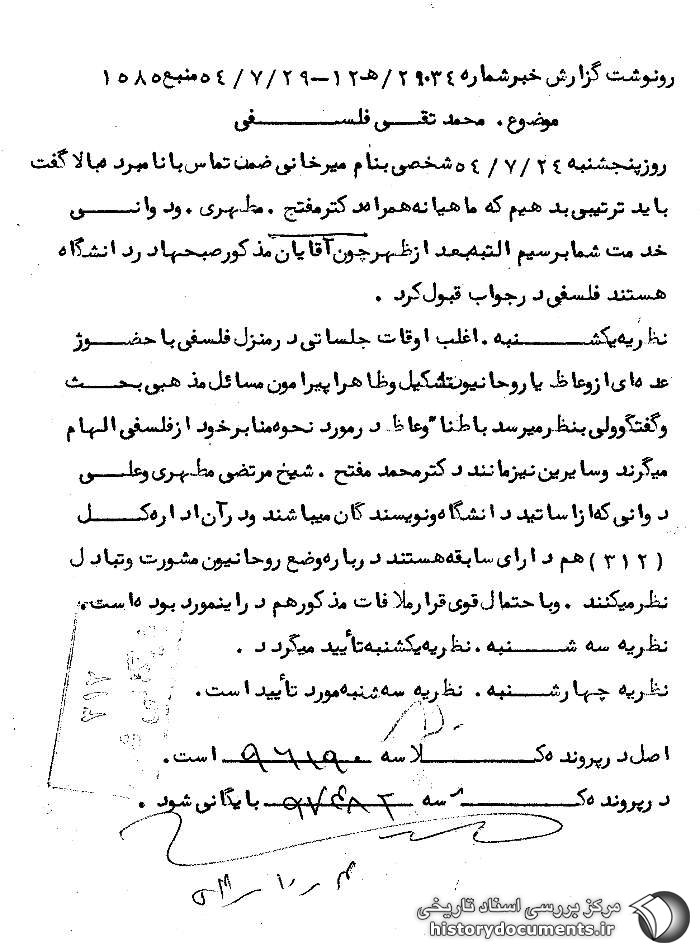 رونوشت گزارش خبرشماره ۲۹۰۳٤/هـ۱۲–۵٤/۷/۲۹منبع۱۵۸۵
موضوع. محمد تقی فلسفی
روزپنجشنبه ۵٤/۷/۲٤شخصی بنام میرخانی ضمن تماس با نامبرده بالا گفت
باید ترتیبی بدهیم که ماهیانه همراه دکترمفتح . مطهری . ودوانی
خدمت شمابرسیم البته بعد از ظهرچون آقایان مذکورصبحها در دانشگاه
هستند فلسفی درجواب قبول کرد .
نظریه یکشنبه . اغلب اوقات جلساتی درمنزل فلسفی با حضور
عده ای ازوعاظ یا روحانیون تشکیل وظاهرا پیرامون مسائل مذهبی بحث
وگفتگوولی بنظرمیرسد باطنا" وعاظ درمورد نحوه منابر خود ازفلسفی الهام
میگرند وسایرین نیزمانند دکترمحمد مفتح . شیخ مرتضی مطهری وعلی
دوانی که ازاساتید دانشگاه ونویسندگان میباشند ودرآن اداره کل
(۳۱۲) هم دارای سابقه هستند درباره وضع روحانیون مشورت وتبادل
نظرمیکنند . وبا حتمال قوی قرارملاقات مذکورهم دراینمورد بوده است.
نظریه سه شنبه . نظریه یکشنبه تأیید میگردد .
نظریه چهارشنبه . نظریه سه شنبه مورد تأیید است .
اصل درپرونده کلاسه ۹۶۱۹۰ است .
درپرونده کلاسه بایگانی شود .
مرکز بررسی اسناد تاریخی
historydocuments.ir